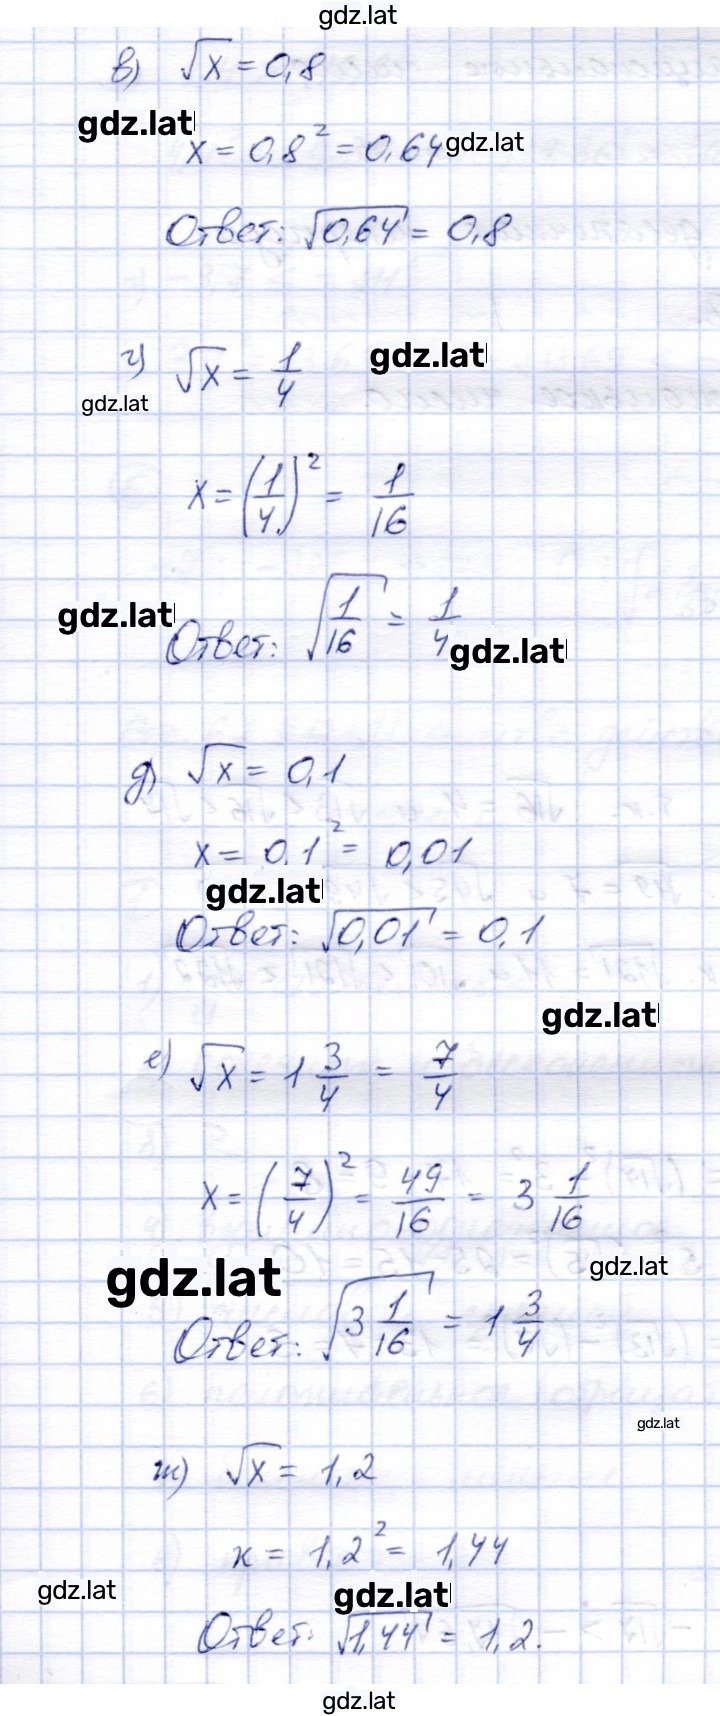 gdz.lat
в) √x = 0,8
gdz.lat
x = 0,8² = 0,64 gdz.lat
Ответ: √0,64 = 0,8
г) √x = 1/4 gdz.lat
gdz.lat
x = (1/4)² = 1/16
gdz.lat
Ответ: √(1/16) = 1/4 gdz.lat
д) √x = 0,1
x = 0,1² = 0,01
gdz.lat
Ответ: √0,01 = 0,1
gdz.lat
е) √x = 1 3/4 = 7/4
x = (7/4)² = 49/16 = 3 1/16
gdz.lat gdz.lat
Ответ: √(3 1/16) = 1 3/4
gdz.lat
ж) √x = 1,2
x = 1,2² = 1,44
gdz.lat gdz.lat
Ответ: √1,44 = 1,2.
gdz.lat